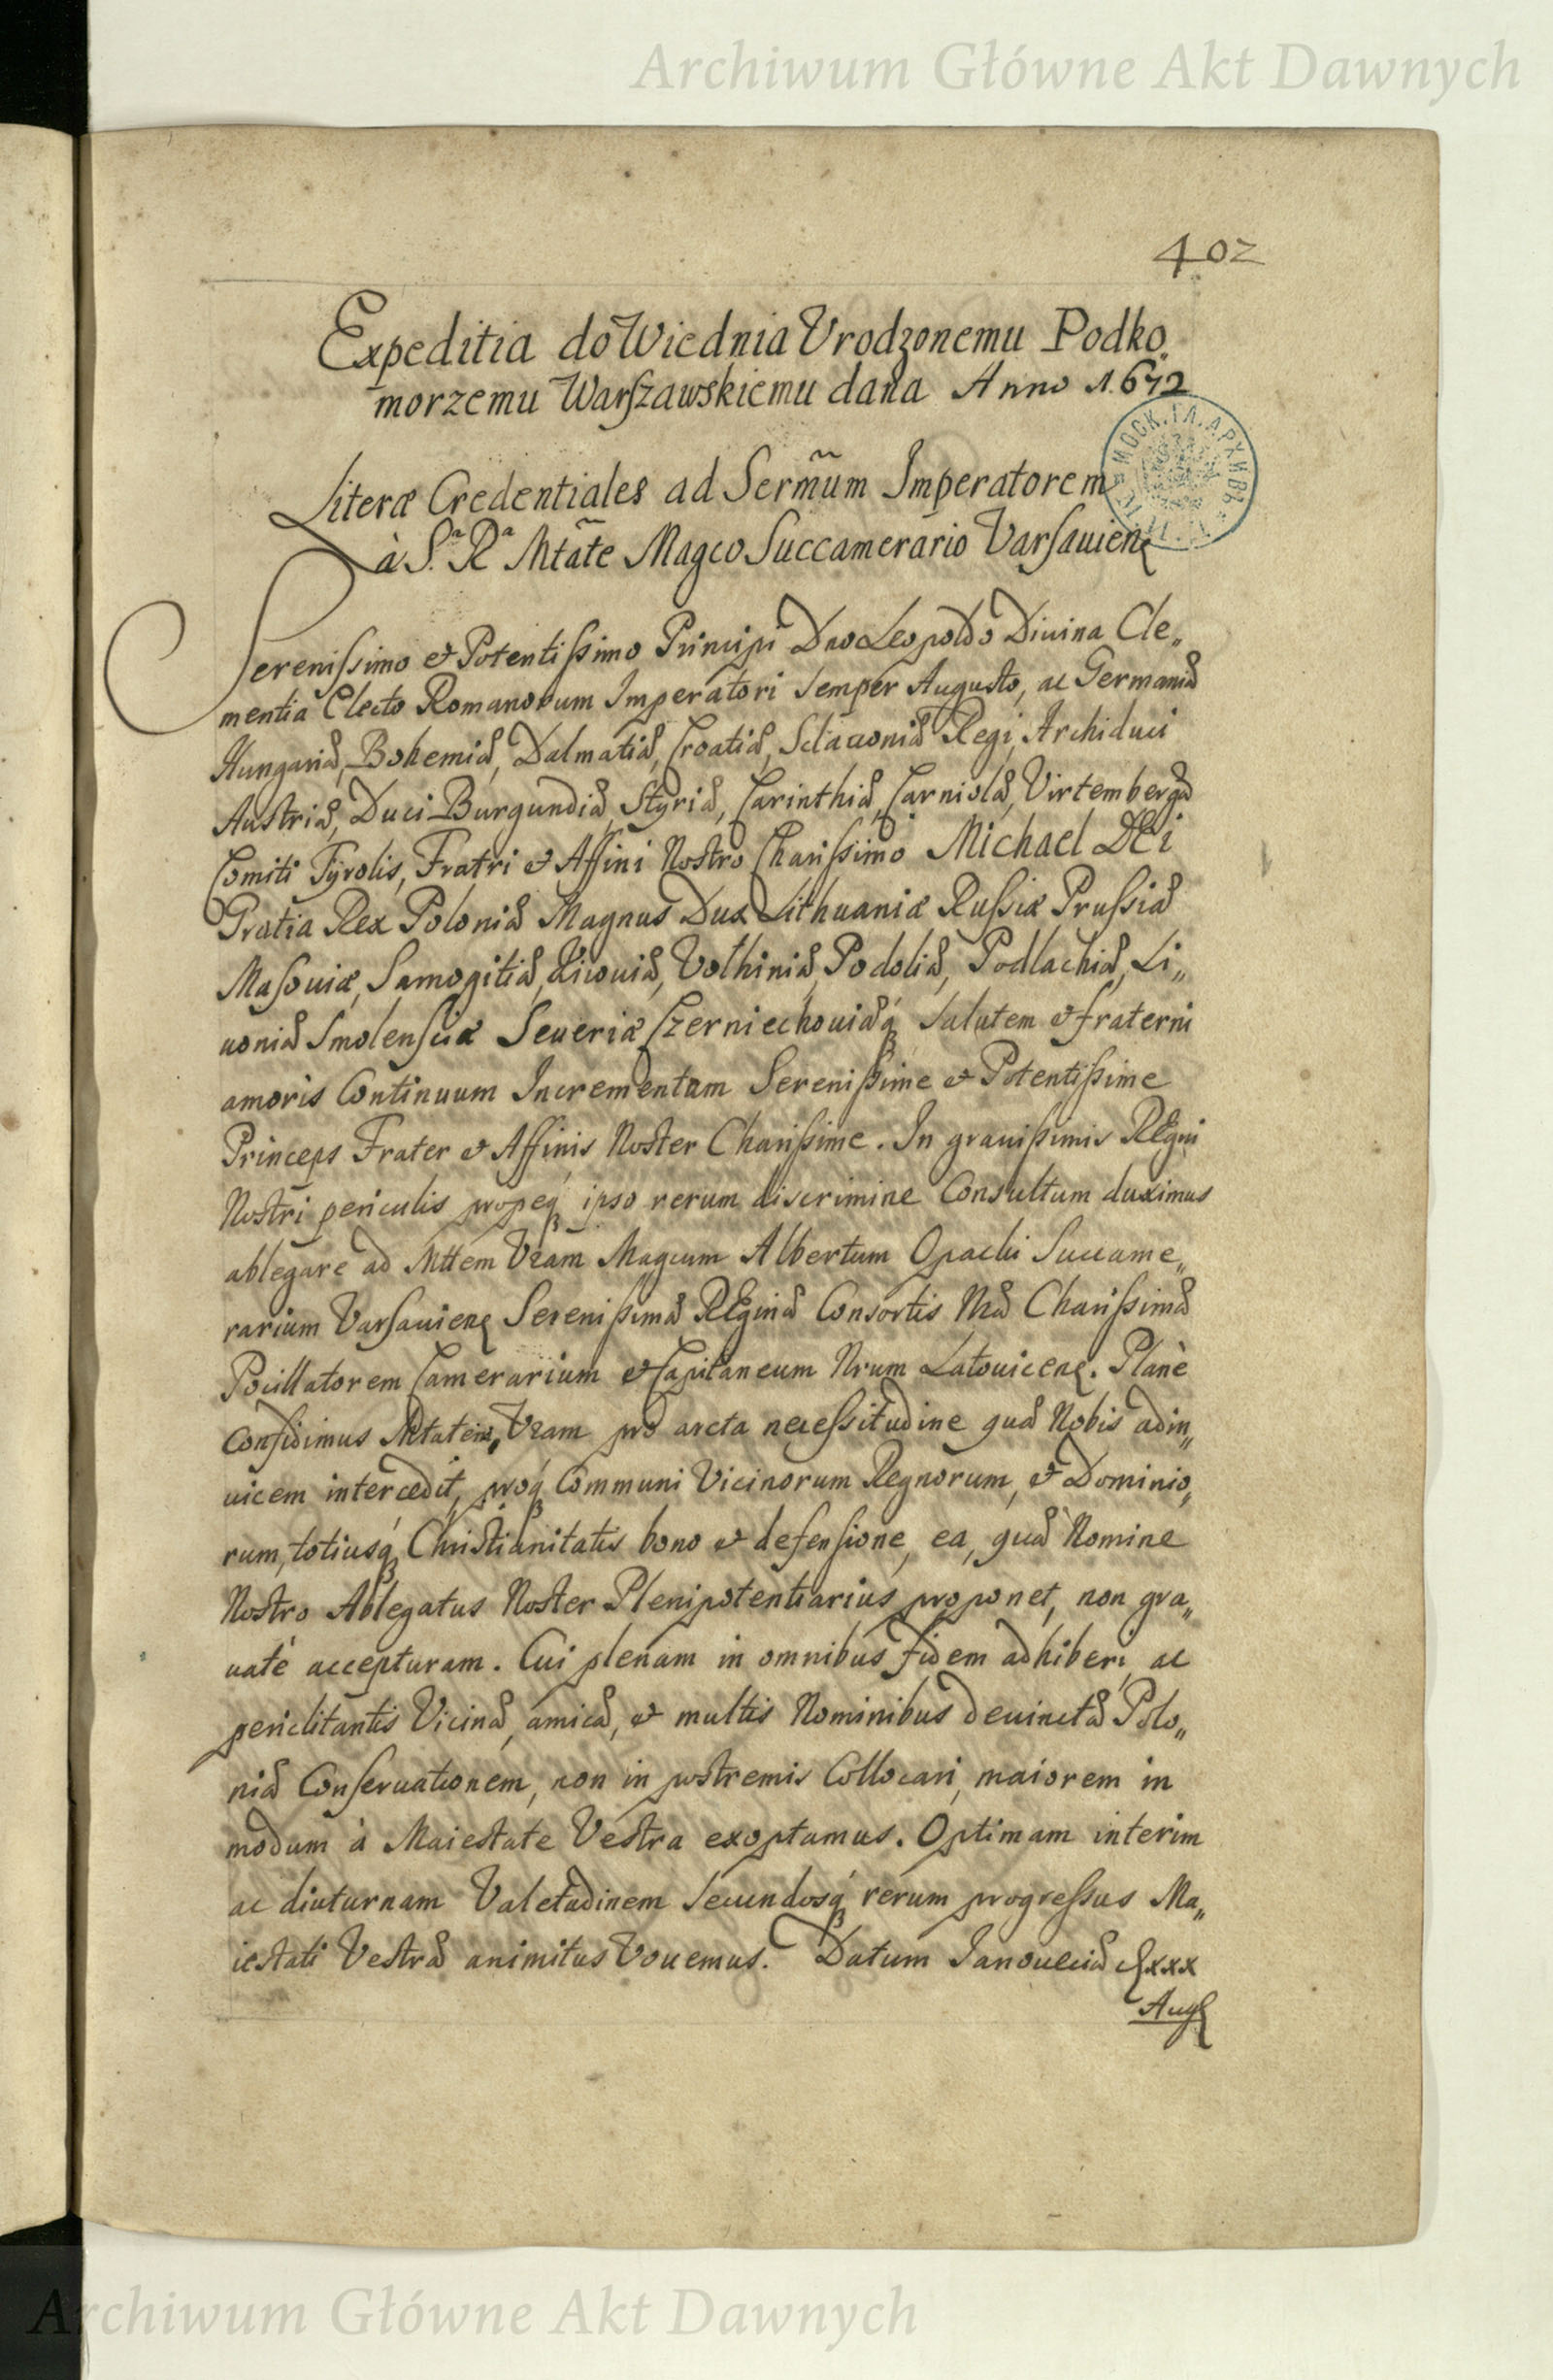 Archiwum Główne Akt Dawnych
402
Expeditia do Wiednia Vrodzonemu Podko„
morzemu Warszawskiemu dana Anno 1672
Literæ Credentiales ad Serm̃um Imperatorem
à S.ª R.ª Mtãte Magco Succamerario Varsauien
Serenissimo et Potentissimo Principi Dno Leopoldo Diuina Cle„
mentia Electo Romanorum Imperatori Semper Augusto, ac Germaniæ
Hungariæ, Bohemiæ, Dalmatiæ, Croatiæ, Sclauoniæ Regi, Archiduci
Austriæ, Duci Burgundiæ, Styriæ, Carinthiæ, Carniolæ, Virtembergæ
Comiti Tyrolis, Fratri et Affini Nostro Charissimo Michael DEi
Gratia Rex Poloniæ Magnus Dux Lithuaniæ Russiæ Prussiæ
Masouiæ, Samogitiæ, Kiouiæ, Volhiniæ, Podoliæ, Podlachiæ, Li„
uoniæ Smolensciæ Seueriæ Czerniechouiæq́ꝫ Salutem et fraterni
amoris Continuum Incrementum Serenissime et Potentissime
Princeps Frater et Affinis Noster Charissime. In grauissimis REgni
Nostri periculis propeq́ꝫ ipso rerum discrimine Consultum duximus
ablegare ad Mttem Vram Magcum Albertum Opacki Succame„
rarium Varsauien Serenissimæ REginæ Consortis Nræ Charissimæ
Pocillatorem Camerarium et Capitaneum Nrum Latouicen. Planè
Confidimus Mtatem Vram pro arcta necessitudine quæ Nobis adin„
uicem intercedit, proq́ꝫ Communi Vicinorum Regnorum, et Dominio„
rum, totiusq́ꝫ Christianitatis bono et defensione, ea, quæ Nomine
Nostro Ablegatus Noster Plenipotentiarius proponet, non gra„
uatè accepturam. Cui plenam in omnibus fidem adhiberi, ac
periclitantis Vicinæ, amicæ, et multis Nominibus deuinctæ Polo„
niæ Conseruationem, non in postremis Collocari, maiorem in
modum à Maiestate Vestra exoptamus. Optimam interim
ac diuturnam Valetudinem Secundosq́ꝫ rerum progressus Ma„
iestati Vestræ animitus Vouemus. Datum Ianoueciæ xxx
Aug
Archiwum Główne Akt Dawnych